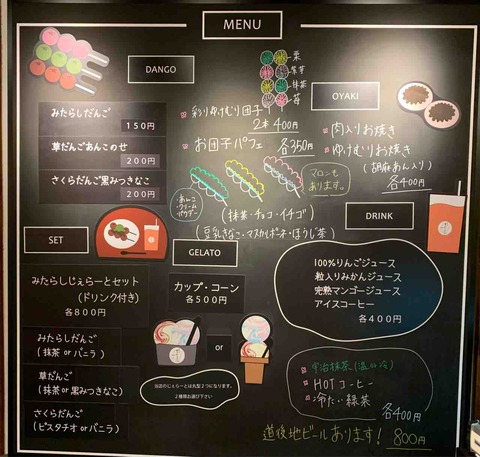 MENU
DANGO
みたらしだんご
150円
草だんごあんこのせ
200円
さくらだんご黒みつきなこ
200円
栗
紫芋
抹茶
苺
彩りゆけむり団子
2本 400円
お団子パフェ 各350円
あんこ
クリーム
パウダー
マロンも
あります。
(抹茶・チョコ・イチゴ)
(豆乳きなこ・マスカルポーネ・ほうじ茶)
OYAKI
肉入りお焼き
ゆけむりお焼き
(胡麻あん入り)
各400円
SET
みたらしじぇらーとセット
(ドリンク付き)
各800円
みたらしだんご
(抹茶 or バニラ)
草だんご
(抹茶 or 黒みつきなこ)
さくらだんご
(ピスタチオ or バニラ)
GELATO
カップ・コーン
各500円
or
当店のじぇらーとは丸型2つになります。
2種類お選び下さい
DRINK
100%りんごジュース
粒入りみかんジュース
完熟マンゴージュース
アイスコーヒー
各400円
宇治抹茶(温or冷)
HOTコーヒー
冷たい緑茶
各400円
道後地ビールあります! 800円